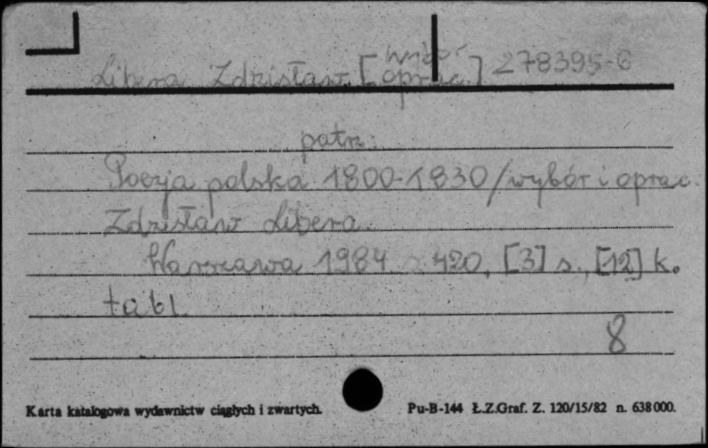 Libera Zdzisław [wybór oprac.] 278395-G
patrz:
Poezja polska 1800-1830 / wybór i oprac.
Zdzisław Libera.
Warszawa 1984 420, [3] s., [12] k.
tabl.
8
Karta katalogowa wydawnictw ciągłych i zwartych. Pu-B-144 Ł.Z.Graf. Z. 120/15/82 n. 638000.